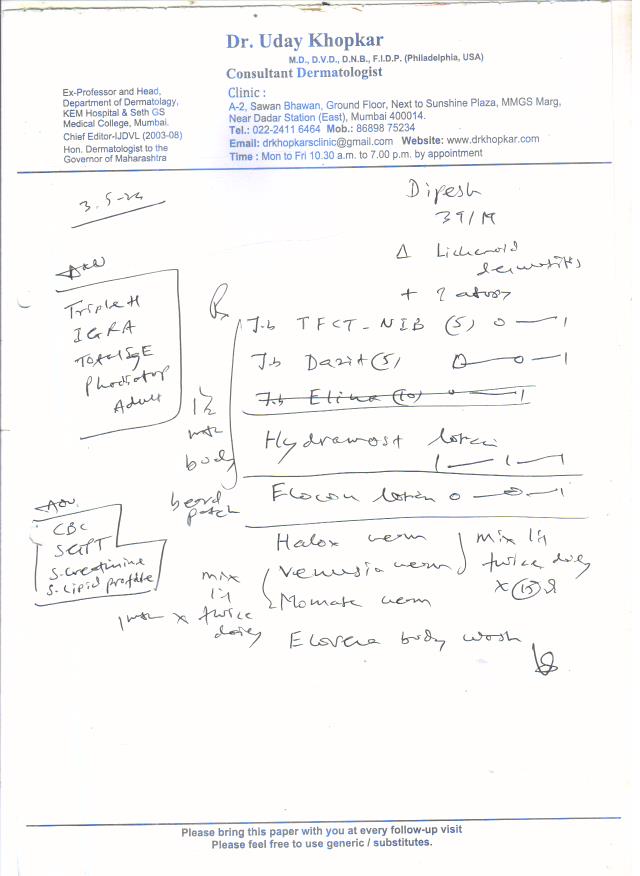 Dr. Uday Khopkar
M.D., D.V.D., D.N.B., F.I.D.P. (Philadelphia, USA)
Consultant Dermatologist
Ex-Professor and Head,
Department of Dermatolagy,
KEM Hospital & Seth GS
Medical College, Mumbai.
Chief Editor-IJDVL (2003-08)
Hon. Dermatologist to the
Governor of Maharashtra
Clinic :
A-2, Sawan Bhawan, Ground Floor, Next to Sunshine Plaza, MMGS Marg,
Near Dadar Station (East), Mumbai 400014.
Tel.: 022-2411 6464 Mob.: 86898 75234
Email: drkhopkarsclinic@gmail.com Website: www.drkhopkar.com
Time : Mon to Fri 10.30 a.m. to 7.00 p.m. by appointment
3.5.24
Dipesh
39/M
Δ Lichenoid
dermatitis
+ ? atopy
Adv
Triple H
IGRA
Total IgE
Phadiatop
Adult
Rx
T.b TFCT-NIB (5) 0 — 1
T.b Dazit (5) 0 — 0 — 1
T.b Elina (10) 0 — 1
Hydramost lotion
1 — 1 — 1
1½
mth
body
beard
patch
Elocon lotion 0 — 0 — 1
Adv.
CBC
SGPT
S. creatinine
S. Lipid profile
Halox
Venusia
Momate
mix
twice
x 15 d
mix
1 mth x twice
Elovera body wash
Please bring this paper with you at every follow-up visit
Please feel free to use generic / substitutes.